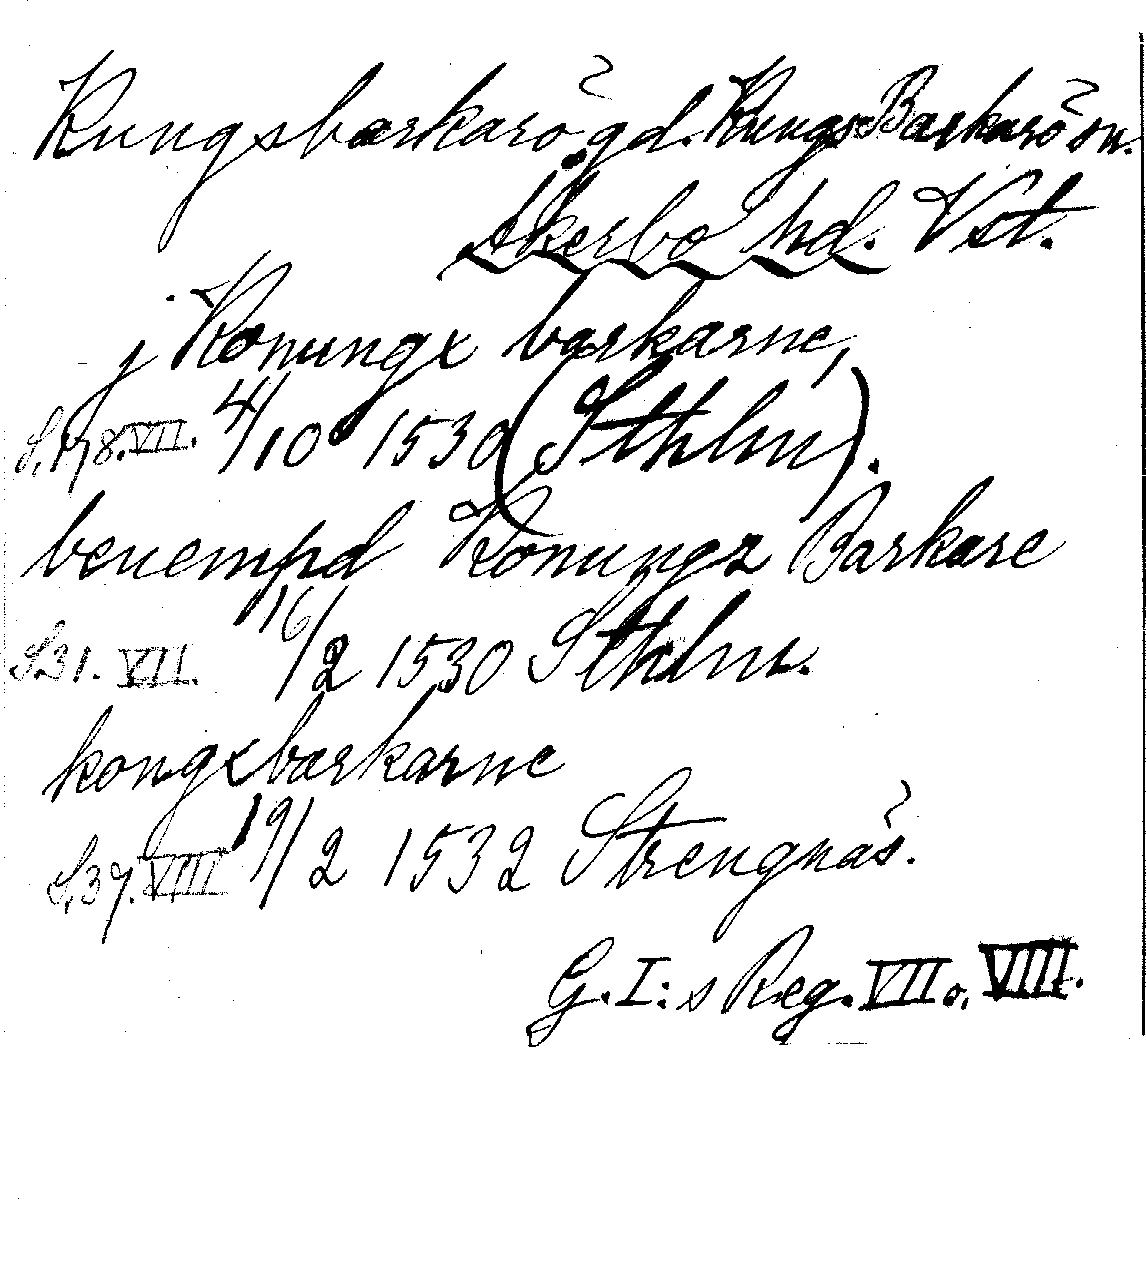 Kungsbarkarö gd. Kungs-Barkarö sn.
Åkerbo hd. Vst.
j Konungx barkarne,
S. 178. VII. 4/10 1530 (Sthlm).
benempd Konungz Barkare
S. 31. VII. 16/2 1530 Sthlm.
kongxbarkarne
S. 37. VIII 19/2 1532 Strengnäs.
G. I:s Reg. VII o. VIII.